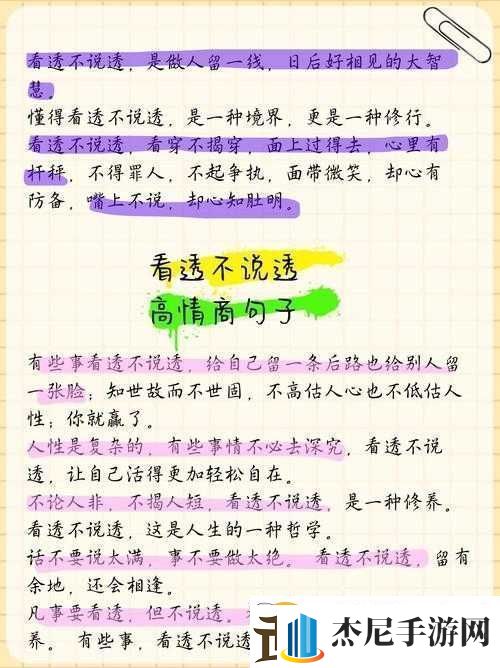 看透不说透，是做人留一线，日后好相见的大智
慧。
懂得看透不说透，是一种境界，更是一种修行。
看透不说透，看穿不揭穿，面上过得去，心里有
杆秤，不得罪人，不起争执，面带微笑，却心有
防备，嘴上不说，却心知肚明。
看透不说透
高情商句子
有些事看透不说透，给自己留一条后路也给别人留
一张脸；知世故而不世固，不高估人心也不低估人
性；你就赢了。
人性是复杂的，有些事情不必去深究，看透不说
透，让自己活得更加轻松自在。
不论人非，不揭人短，看透不说透，是一种修养。
看透不说透，这是人生的一种哲学。
话不要说太满，事不要做太绝。 看透不说透，留有
余地，还会相逢。
凡事要看透，但不说透。
养。 有些事，看透不说透
杰尼手游网